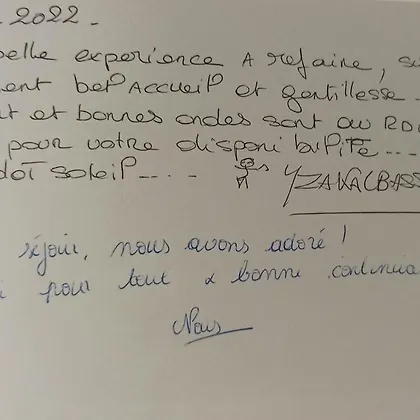 2022.
belle experience A refaire, si
ment bel Accueil et gentillesse..
t et bonnes ondes sont au RD
pour votre disponibilité....
dot soleil.... YZAKALBASS
séjour, nous avons adoré !
i pour tout & bonne continua
Nous